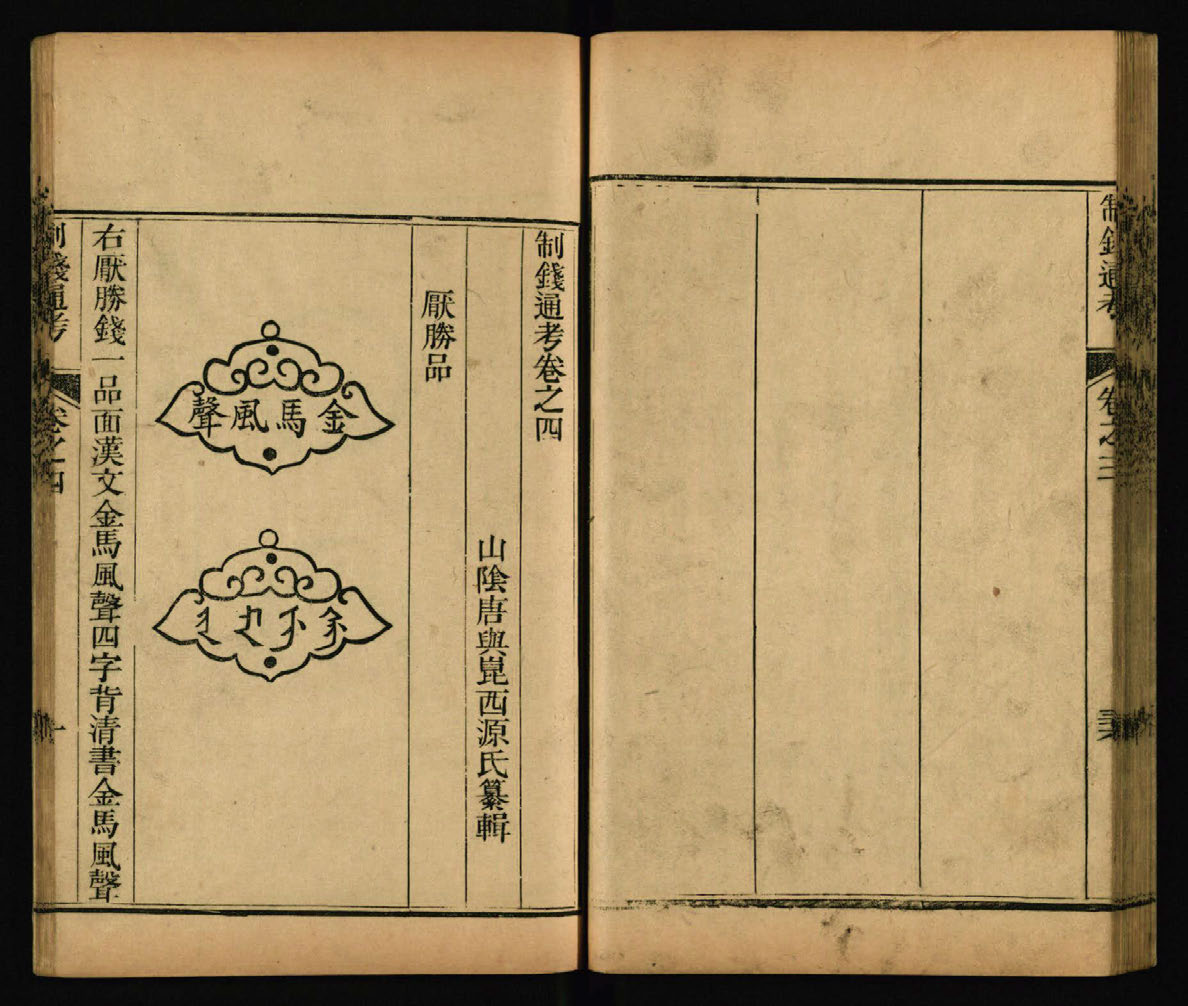 制錢通考
卷之三
制錢通考卷之四
山陰唐與崑西源氏纂輯
厭勝品
金馬風聲
右厭勝錢一品面漢文金馬風聲四字背清書金馬風聲
制錢通考
卷之四
一